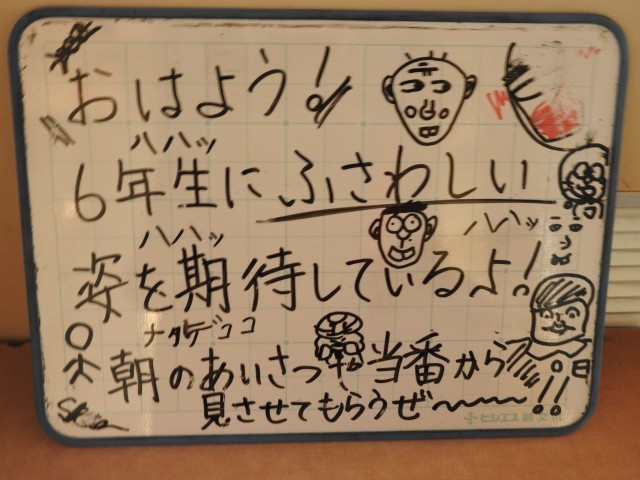 おはよう！
ハハッ
6年生にふさわしい
ハハッ
ハハッ
姿を期待しているよ！
ナタデココ
朝のあいさつ 当番から
見させてもらうぜ〜〜〜!!
日